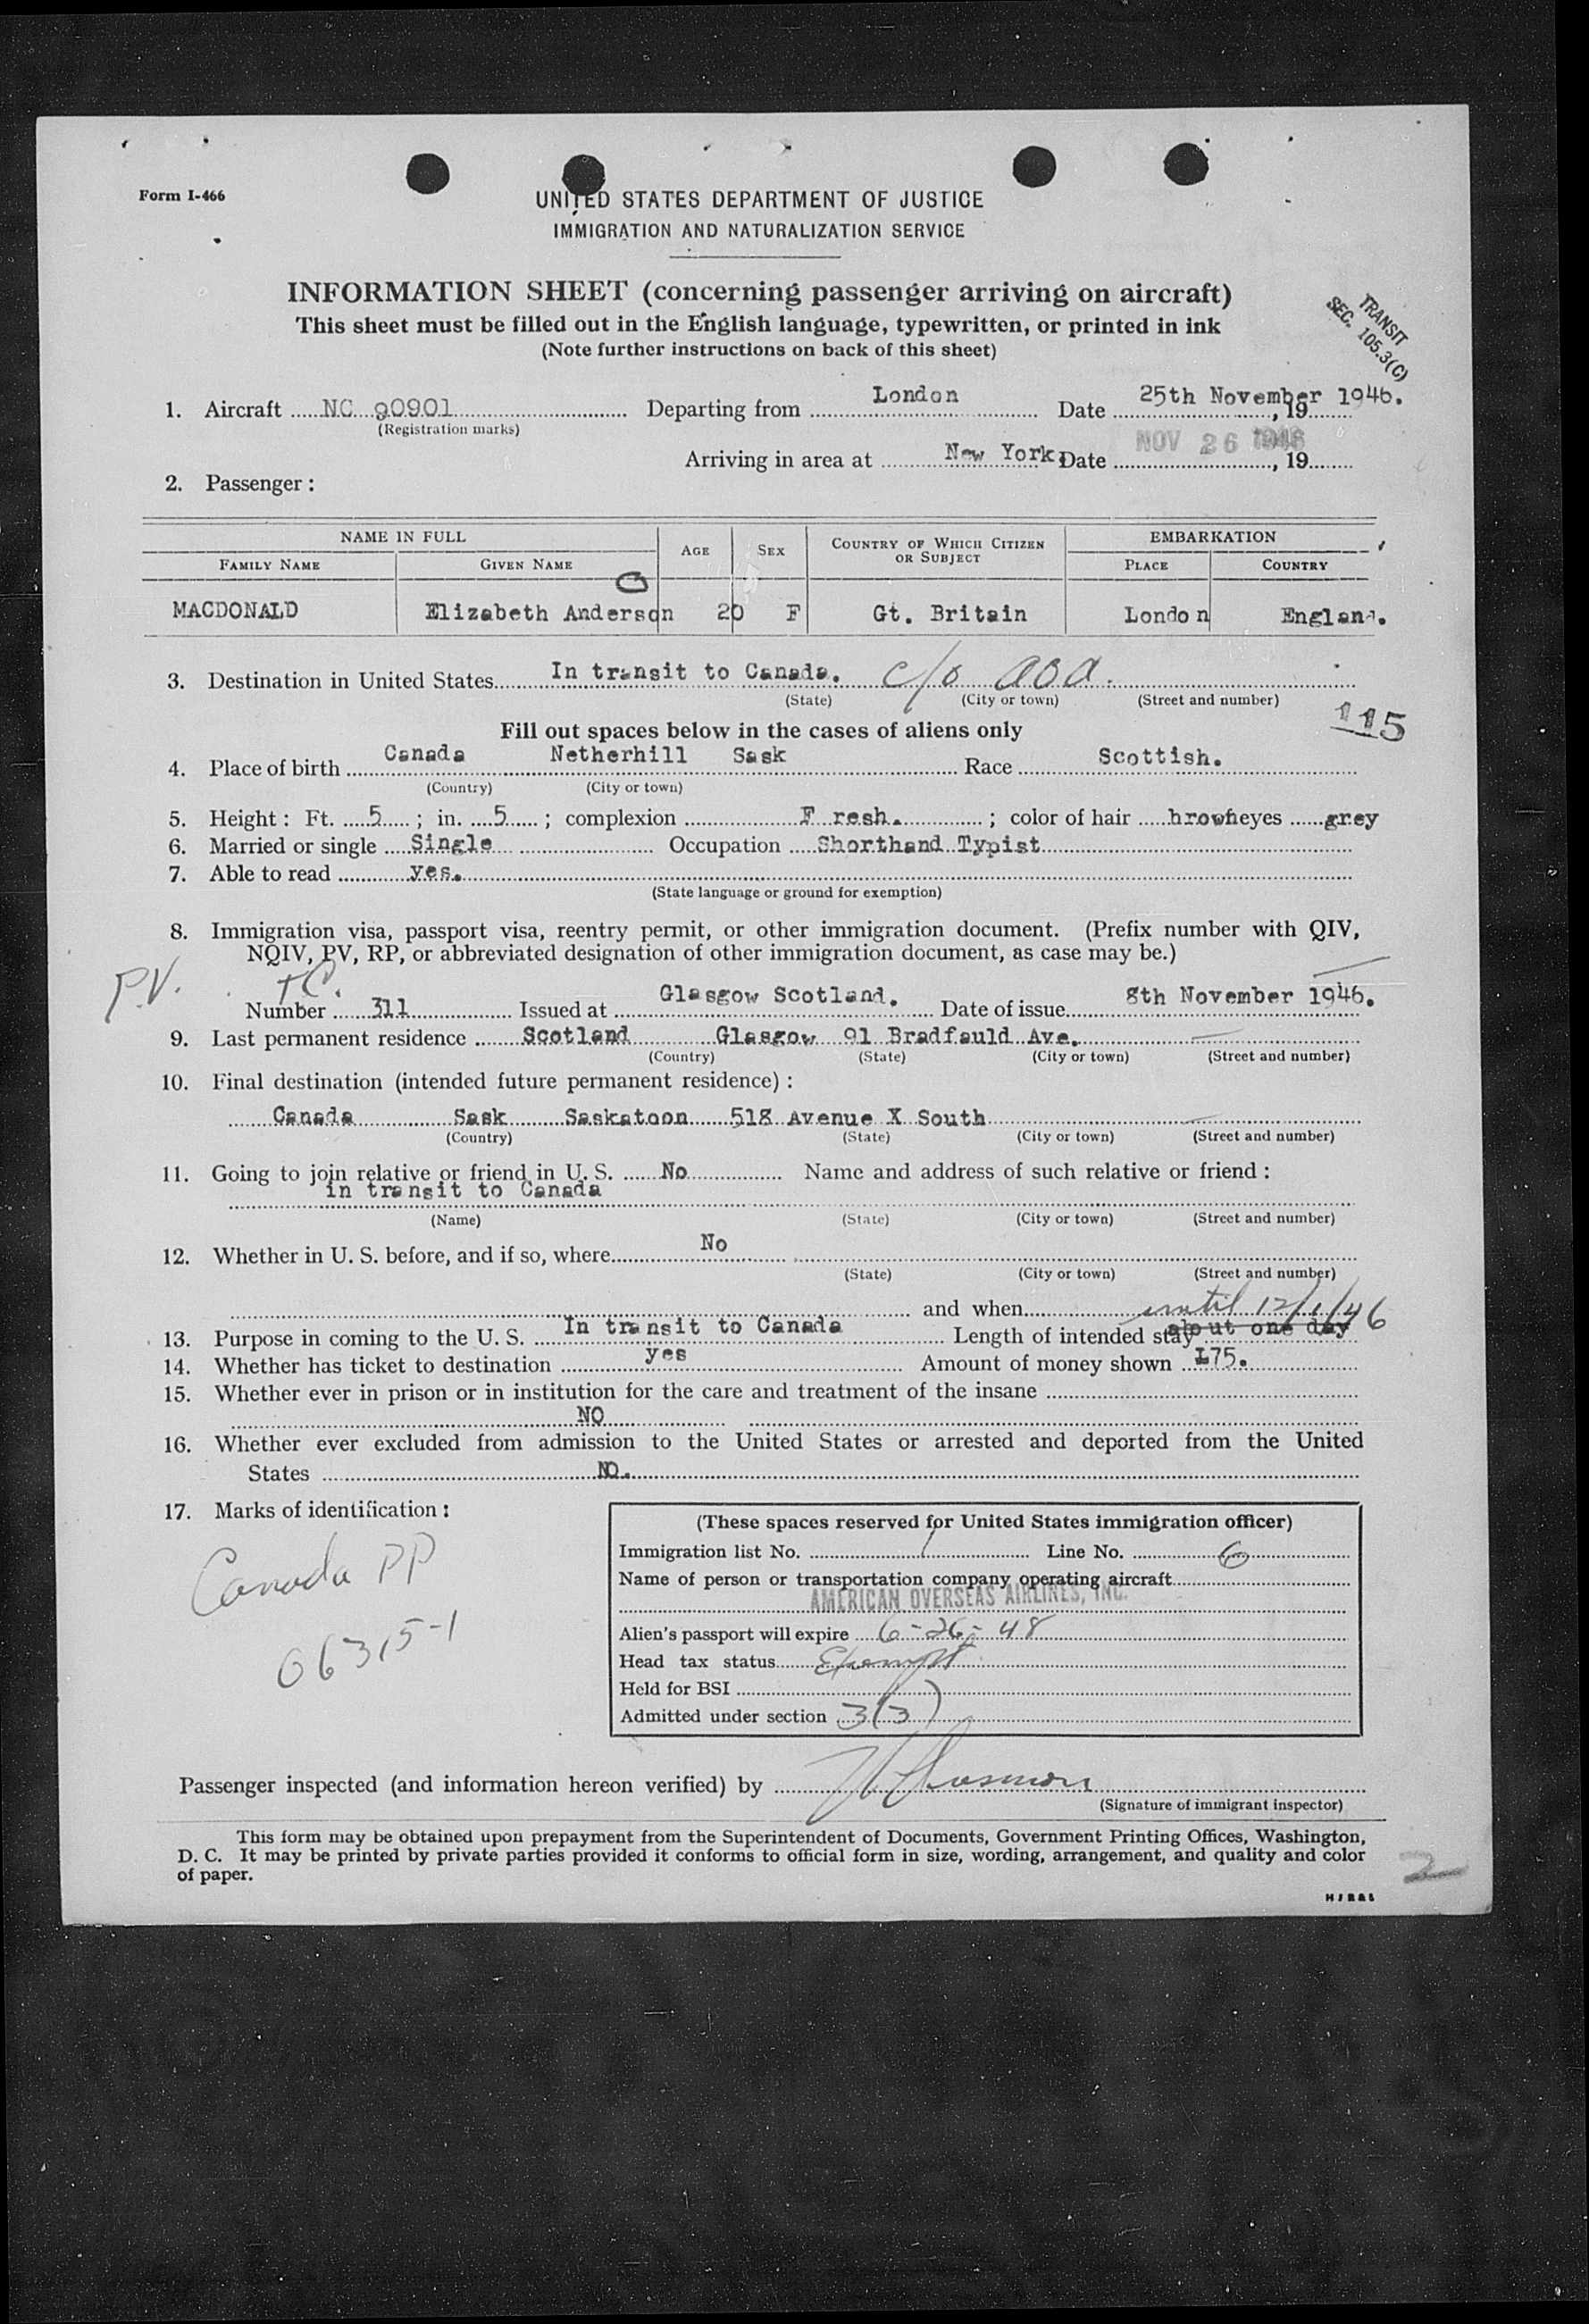 Form I-466
UNITED STATES DEPARTMENT OF JUSTICE
IMMIGRATION AND NATURALIZATION SERVICE
INFORMATION SHEET (concerning passenger arriving on aircraft)
This sheet must be filled out in the English language, typewritten, or printed in ink
(Note further instructions on back of this sheet)
TRANSIT
SEC. 105.3(C)
1. Aircraft NC 90901 Departing from London Date 25th November 1946. , 19
(Registration marks)
Arriving in area at New York Date NOV 26 1946 , 19
2. Passenger:
NAME IN FULL AGE SEX COUNTRY OF WHICH CITIZEN OR SUBJECT EMBARKATION
FAMILY NAME GIVEN NAME PLACE COUNTRY
MACDONALD Elizabeth Anderson 20 F Gt. Britain London England.
3. Destination in United States In transit to Canada. c/o AOA.
(State) (City or town) (Street and number)
115
Fill out spaces below in the cases of aliens only
4. Place of birth Canada Netherhill Sask Race Scottish.
(Country) (City or town)
5. Height: Ft. 5 ; in. 5 ; complexion F resh. ; color of hair brown eyes grey
6. Married or single Single Occupation Shorthand Typist
7. Able to read yes.
(State language or ground for exemption)
8. Immigration visa, passport visa, reentry permit, or other immigration document. (Prefix number with QIV,
NQIV, PV, RP, or abbreviated designation of other immigration document, as case may be.)
P.V. TC.
Number 311 Issued at Glasgow Scotland. Date of issue 8th November 1946.
9. Last permanent residence Scotland Glasgow 91 Bradfauld Ave.
(Country) (State) (City or town) (Street and number)
10. Final destination (intended future permanent residence):
Canada Sask Saskatoon 518 Avenue X South
(Country) (State) (City or town) (Street and number)
11. Going to join relative or friend in U. S. No Name and address of such relative or friend:
in transit to Canada
(Name) (State) (City or town) (Street and number)
12. Whether in U. S. before, and if so, where No
(State) (City or town) (Street and number)
and when until 12/1/46
13. Purpose in coming to the U. S. In transit to Canada Length of intended stay about one day
14. Whether has ticket to destination yes Amount of money shown £75.
15. Whether ever in prison or in institution for the care and treatment of the insane
NO
16. Whether ever excluded from admission to the United States or arrested and deported from the United
States NO.
17. Marks of identification:
Canada PP
06315-1
(These spaces reserved for United States immigration officer)
Immigration list No. 1 Line No. 6
Name of person or transportation company operating aircraft
AMERICAN OVERSEAS AIRLINES, INC.
Alien's passport will expire 6-26-48
Head tax status Exempt
Held for BSI
Admitted under section 3(3)
Passenger inspected (and information hereon verified) by
(Signature of immigrant inspector)
This form may be obtained upon prepayment from the Superintendent of Documents, Government Printing Offices, Washington,
D. C. It may be printed by private parties provided it conforms to official form in size, wording, arrangement, and quality and color
of paper.
2